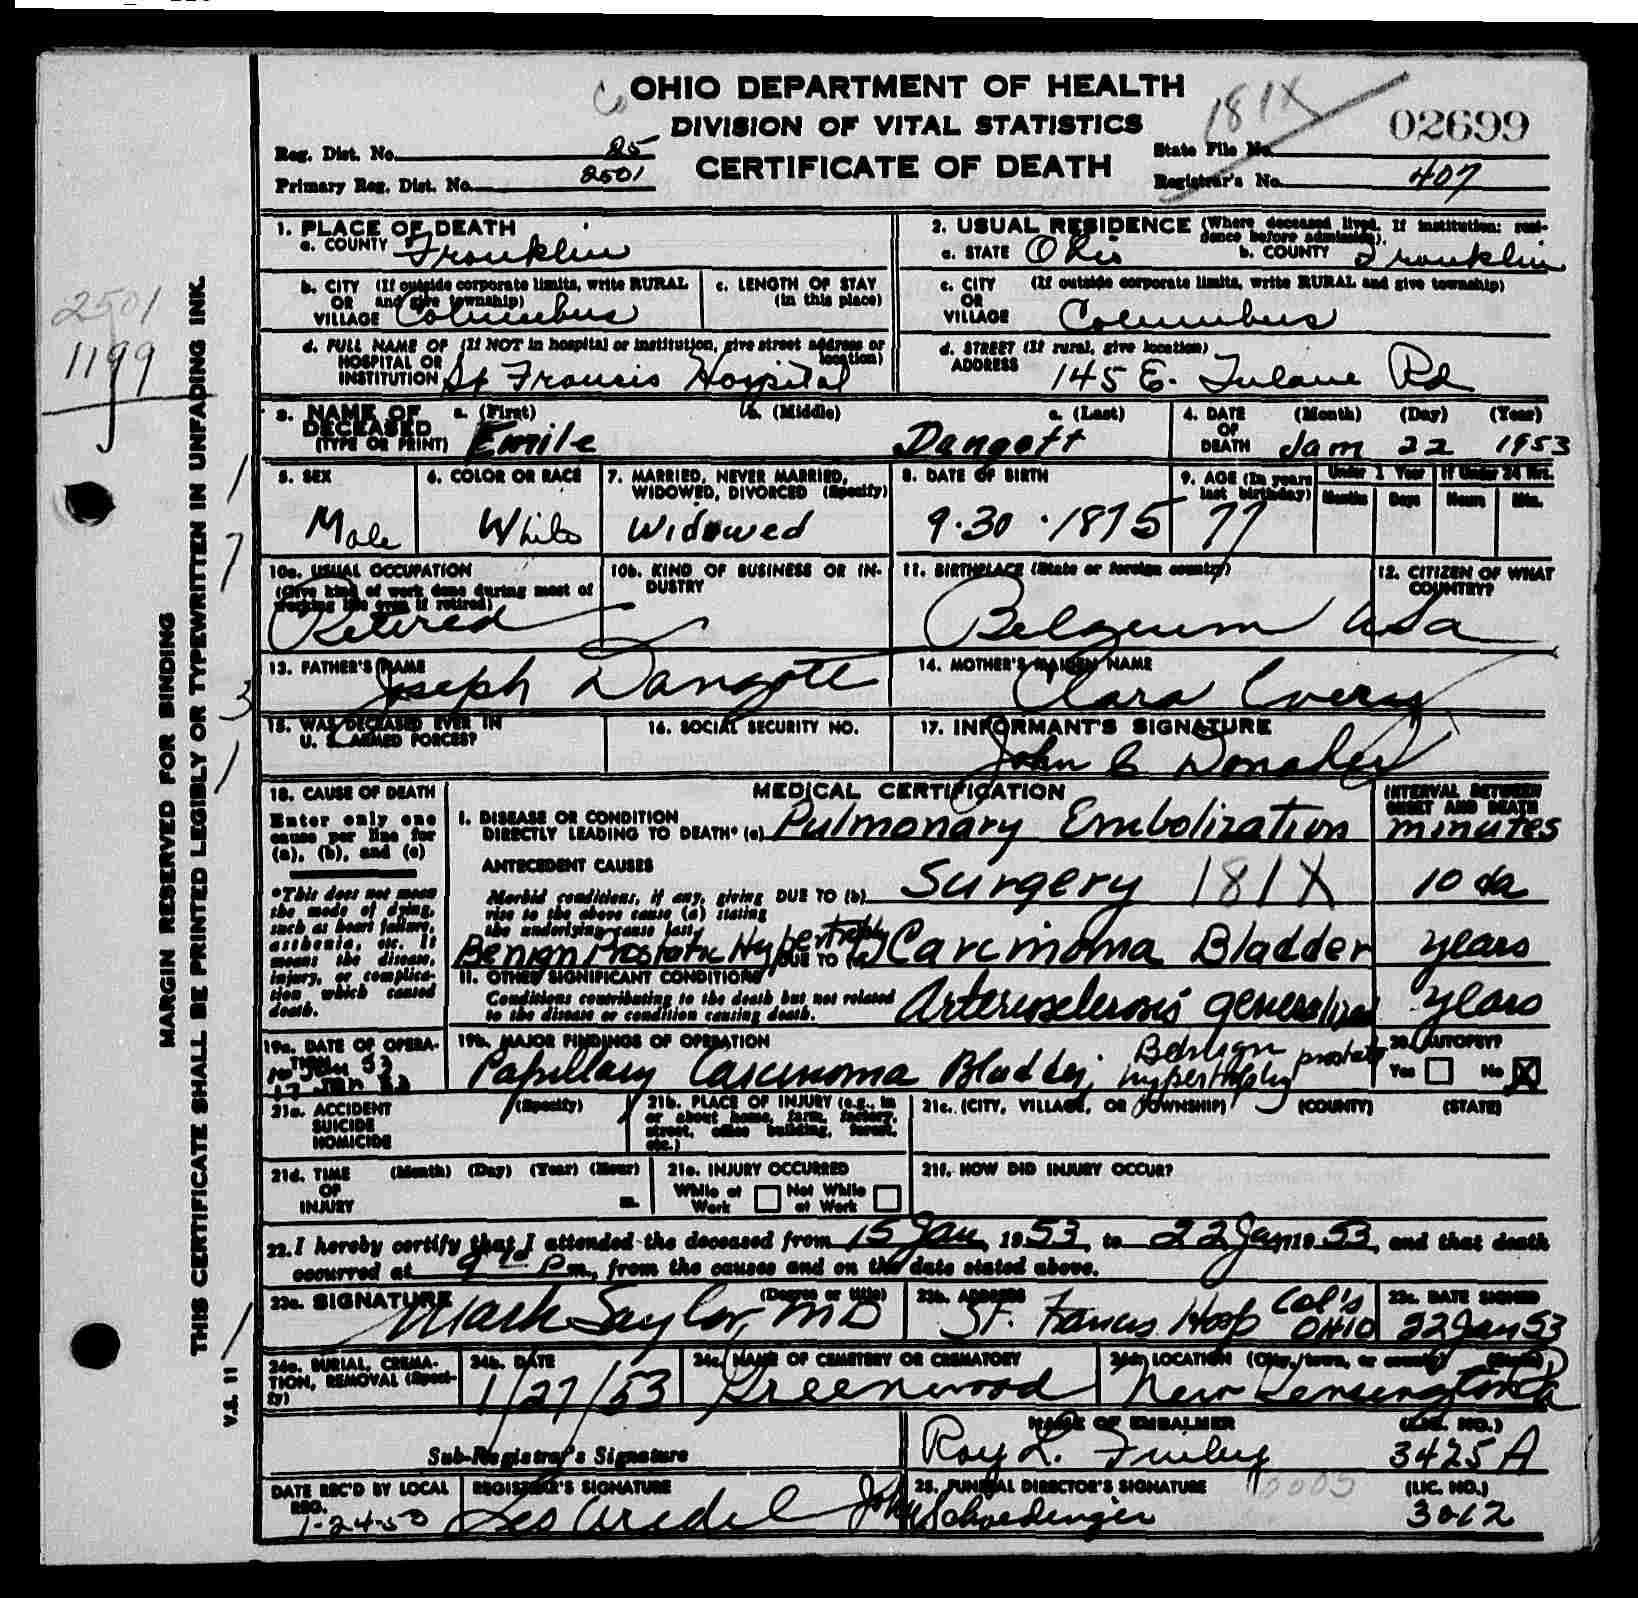 OHIO DEPARTMENT OF HEALTH
DIVISION OF VITAL STATISTICS
CERTIFICATE OF DEATH
181X
02699
Reg. Dist. No. 25
Primary Reg. Dist. No. 2501
State File No.
Registrar's No. 407
2501
1199
MARGIN RESERVED FOR BINDING
THIS CERTIFICATE SHALL BE PRINTED LEGIBLY OR TYPEWRITTEN IN UNFADING INK.
V.S. 11
1. PLACE OF DEATH
a. COUNTY Franklin
2. USUAL RESIDENCE (Where deceased lived. If institution: residence before admission).
a. STATE Ohio b. COUNTY Franklin
b. CITY (If outside corporate limits, write RURAL
OR and give township)
VILLAGE Columbus
c. LENGTH OF STAY
(in this place)
c. CITY (If outside corporate limits, write RURAL and give township)
OR
VILLAGE Columbus
d. FULL NAME OF (If NOT in hospital or institution, give street address or
HOSPITAL OR location)
INSTITUTION St Francis Hospital
d. STREET (If rural, give location)
ADDRESS 145 E. Tulane Rd
3. NAME OF DECEASED (TYPE OR PRINT)
a. (First) b. (Middle) c. (Last)
Emile Dangott
4. DATE OF DEATH (Month) (Day) (Year)
Jan 22 1953
5. SEX
Male
6. COLOR OR RACE
White
7. MARRIED, NEVER MARRIED,
WIDOWED, DIVORCED (Specify)
Widowed
8. DATE OF BIRTH
9-30-1875
9. AGE (In years
last birthday)
77
Under 1 Year
Months Days
If Under 24 Hrs.
Hours Min.
10a. USUAL OCCUPATION
(Give kind of work done during most of
working life even if retired)
Retired
10b. KIND OF BUSINESS OR IN-
DUSTRY
11. BIRTHPLACE (State or foreign country)
Belgeum
12. CITIZEN OF WHAT
COUNTRY?
USa
13. FATHER'S NAME
Joseph Dangott
14. MOTHER'S MAIDEN NAME
Clara
15. WAS DECEASED EVER IN
U. S. ARMED FORCES?
16. SOCIAL SECURITY NO.
17. INFORMANT'S SIGNATURE
John C
18. CAUSE OF DEATH
Enter only one
cause per line for
(a), (b), and (c)
*This does not mean
the mode of dying,
such as heart failure,
asthenia, etc. It
means the disease,
injury, or complica-
tion which caused
death.
MEDICAL CERTIFICATION
INTERVAL BETWEEN
ONSET AND DEATH
I. DISEASE OR CONDITION
DIRECTLY LEADING TO DEATH* (a) Pulmonary Embolization minutes
ANTECEDENT CAUSES
Morbid conditions, if any, giving
rise to the above cause (a) stating
the underlying cause last.
DUE TO (b) Surgery 181X 10 da
Benign Prostatic Hypertrophy
DUE TO (c) Carcinoma Bladder years
II. OTHER SIGNIFICANT CONDITIONS
Conditions contributing to the death but not related
to the disease or condition causing death.
Arteriosclerosis generalized years
19a. DATE OF OPERA-
TION
17 Jan 53
19b. MAJOR FINDINGS OF OPERATION
Papillary Carcinoma Bladder, Benign prostate
hypertrophy
20. AUTOPSY?
Yes No X
21a. ACCIDENT (Specify)
SUICIDE
HOMICIDE
21b. PLACE OF INJURY (e.g., in
or about home, farm, factory,
street, office building, forest,
etc.)
21c. (CITY, VILLAGE, OR TOWNSHIP) (COUNTY) (STATE)
21d. TIME (Month) (Day) (Year) (Hour)
OF
INJURY m.
21e. INJURY OCCURRED
While at Work Not While at Work
21f. HOW DID INJURY OCCUR?
22. I hereby certify that I attended the deceased from 15 Jan, 1953, to 22 Jan, 1953, and that death
occurred at P m., from the causes and on the date stated above.
23a. SIGNATURE (Degree or title)
Mark Saylor, MD
23b. ADDRESS
St. Francis Hosp Col's OHIO
23c. DATE SIGNED
22 Jan 53
24a. BURIAL, CREMA-
TION, REMOVAL (Speci-
fy)
24b. DATE
1/27/53
24c. NAME OF CEMETERY OR CREMATORY
Greenwood
24d. LOCATION (City, town, or county) (State)
New Kensington Pa
Sub-Registrar's Signature
NAME OF EMBALMER (LIC. NO.)
Roy L. 3425 A
DATE REC'D BY LOCAL
REG.
REGISTRAR'S SIGNATURE
25. FUNERAL DIRECTOR'S SIGNATURE (LIC. NO.)
John Schoedinger 3012